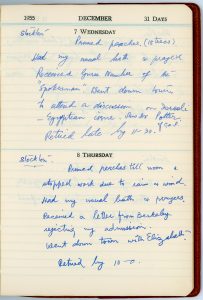 1955 DECEMBER 31 DAYS
7 WEDNESDAY
Stockton.
Pruned peaches. (18 trees)
Had my usual bath & prayers
Received Guru Number of the
"Spokesman" Went down town
to attend a discussion on Israeli-
Egyptian
Retired late by 11-30.
8 THURSDAY
Stockton.
Pruned peaches till noon &
stopped work due to rain & wind.
Had my usual bath & prayers.
Received a letter from Berkeley
rejecting my admission.
Went down town with Elizabeth.
Retired by 10-0.